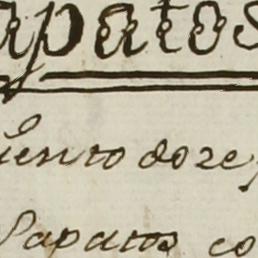 apatos
iento doze
Sapatos co